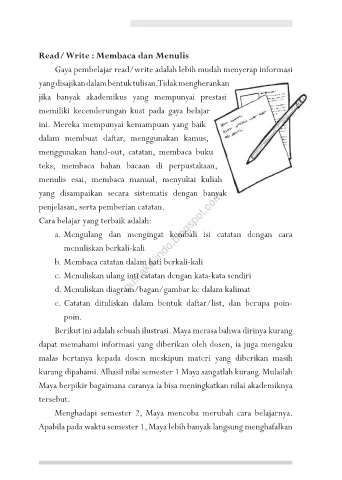 Read/Write : Membaca dan Menulis
Gaya pembelajar read/write adalah lebih mudah menyerap informasi
yang disajikan dalam bentuk tulisan. Tidak mengherankan
jika banyak akademikus yang mempunyai prestasi
memiliki kecenderungan kuat pada gaya belajar
ini. Mereka mempunyai kemampuan yang baik
dalam membuat daftar, menggunakan kamus,
menggunakan hand-out, catatan, membaca buku
teks, membaca bahan bacaan di perpustakaan,
menulis esai, membaca manual, menyukai kuliah
yang disampaikan secara sistematis dengan banyak
penjelasan, serta pemberian catatan.
Cara belajar yang terbaik adalah:
a. Mengulang dan mengingat kembali isi catatan dengan cara
menuliskan berkali-kali
b. Membaca catatan dalam hati berkali-kali
c. Menuliskan ulang inti catatan dengan kata-kata sendiri
d. Menuliskan diagram/bagan/gambar ke dalam kalimat
e. Catatan dituliskan dalam bentuk daftar/list, dan berupa poin-
poin.
Berikut ini adalah sebuah ilustrasi. Maya merasa bahwa dirinya kurang
dapat memahami informasi yang diberikan oleh dosen, ia juga mengaku
malas bertanya kepada dosen meskipun materi yang diberikan masih
kurang dipahami. Alhasil nilai semester 1 Maya sangatlah kurang. Mulailah
Maya berpikir bagaimana caranya ia bisa meningkatkan nilai akademiknya
tersebut.
Menghadapi semester 2, Maya mencoba merubah cara belajarnya.
Apabila pada waktu semester 1, Maya lebih banyak langsung menghafalkan